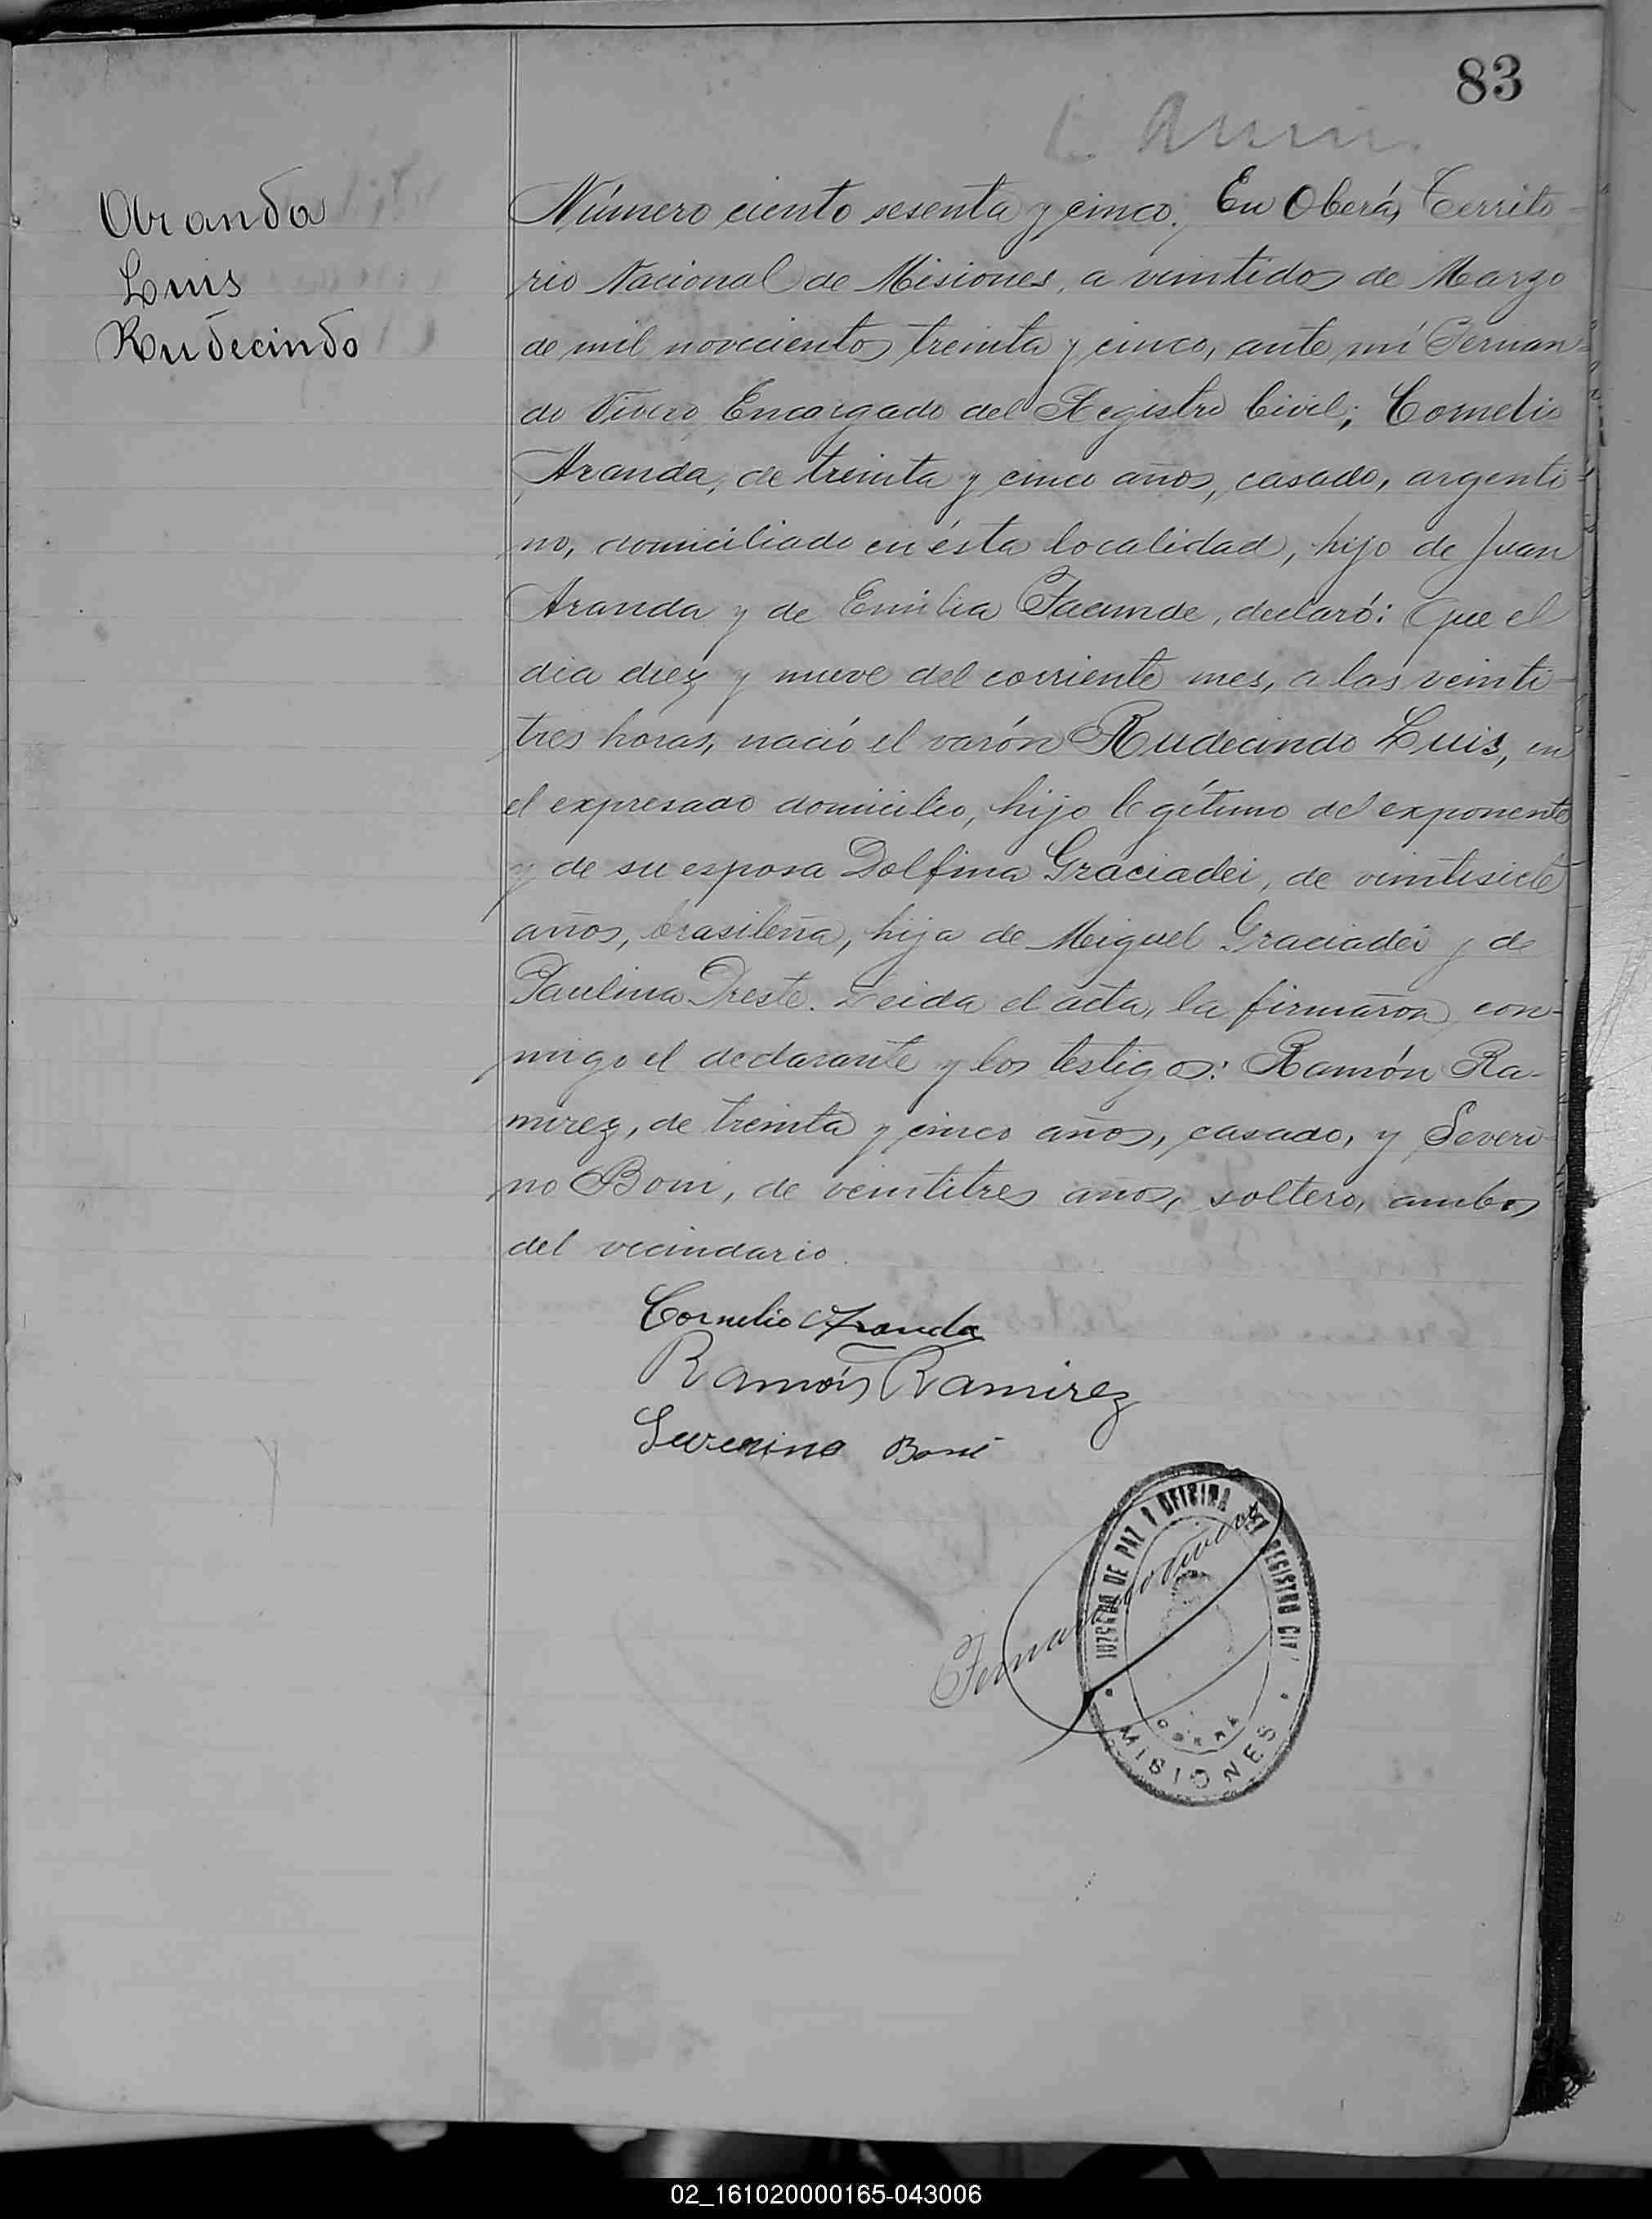 83
Aranda
Luis
Rudecindo
Número ciento sesenta y cinco. En Oberá, Territo-
rio Nacional de Misiones, a veintidos de Marzo
de mil novecientos treinta y cinco, ante mí Fernan-
do Vivero, Encargado del Registro Civil; Cornelio
Aranda, de treinta y cinco años, casado, argenti-
no, domiciliado en ésta localidad, hijo de Juan
Aranda y de Emilia Facunde, declaró: Que el
dia diez y nueve del corriente mes, a las veinti-
tres horas, nació el varón Rudecindo Luis, en
el expresado domicilio, hijo legítimo del exponente
y de su esposa Dolfina Graciadei, de veintisiete
años, brasileña, hija de Miguel Graciadei y de
Paulina Dreste. Leida el acta, la firmaron con-
migo el declarante y los testigos: Ramón Ra-
mirez, de treinta y cinco años, casado, y Severi-
no Boni, de veintitres años, soltero, ambos
del vecindario.
Cornelio Aranda
Ramón Ramirez
Severino Boni
JUZGADO DE PAZ Y OFICINA DEL REGISTRO CIV
OBERA
MISIONES
02_161020000165-043006